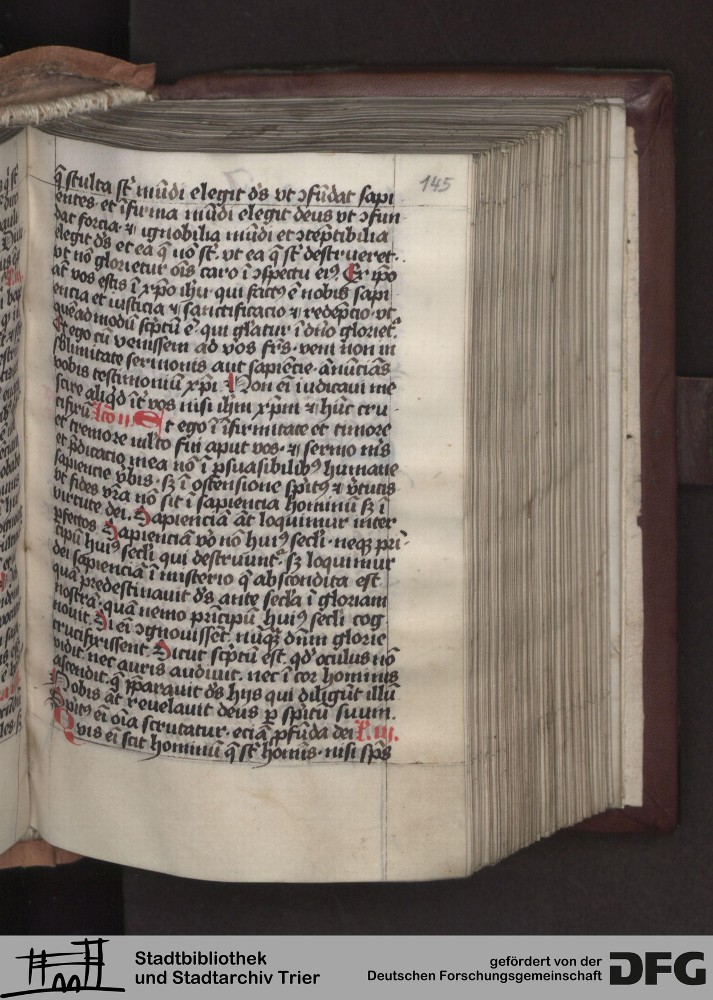 145
q̄ stulta st̄ mūdi elegit dr̄s vt ɔfūdat sapi
entes · et īfirma mūdi elegit deus vt ɔfun
dat forcia · ⁊ ignobilia mūdi et ɔtēptibilia
elegit dr̄s et ea q̄ nō st̄ · vt ea q̄ st̄ destrueret ·
vt nō glorietur oīs caro ī ɔspectu eiꝰ Ex ip̄o
at̄ vos estis ī xp̄o ihu · qui factꝰ ē nobis sapi
encia et iusticia ⁊ sanctificacio ⁊ redēpcio · vt
quēadmodū sc̄ptū ē · qui gl̄atur ī dn̄o gloriet᷑
Et ego cū venissem ad vos fr̄s · veni non in
sublimitate sermonis aut sapiēcie · ānūciās
vobis testimoniū xp̄i · Non ei̅ iudicaui me
scire aliqd̄ īt̄ vos nisi ihm̄ xp̄m ⁊ hūc cru
cifixū lc̄o ii Et ego ī īfirmitate et timore
et tremore ml̄to fui aput vos · ⁊ sermo m̄s
et p̄dicatio mea nō ī ꝑsuasibilibꝰ humane
sapiencie v̄bis · sꝫ ī ostensione sp̄itꝰ ⁊ v̄tutis
vt fides vr̄a nō sit ī sapiencia hominū sꝫ ī
virtute dei · Sapienciā at̄ loquimur inter
ꝑfectos Sapienciā vō nō huiꝰ secl̄i · neqꝫ pri
cipū huiꝰ secl̄i qui destruūnt᷑ · sꝫ loquimur
dei sapienciā ī misterio q̄ abscondita est
quā predestinauit dr̄s ante secl̄a ī gloriam
nostrā · quā nemo prīcipū huiꝰ secl̄i cog
nouit Si ei̅ ɔgnouissēt · nūqꝫ dn̄m glorie
crucifixissent · Sicut sc̄ptū est · qd̄ oculus nō
vidit · nec auris audiuit · nec ī cor hominis
ascendit · q̄ p̄parauit dr̄s hijs qui diligūt illū
Nobis at̄ reuelauit deus ꝑ sp̄itū suum ·
Spitꝰ ei̅ oīa scrutatur · eciā ꝓfūda dei l̄ · iii ·
Quis ei̅ scit hominū q̄ st̄ homīs · nisi sp̄s
Stadtbibliothek
und Stadtarchiv Trier
gefördert von der
Deutschen Forschungsgemeinschaft
DFG